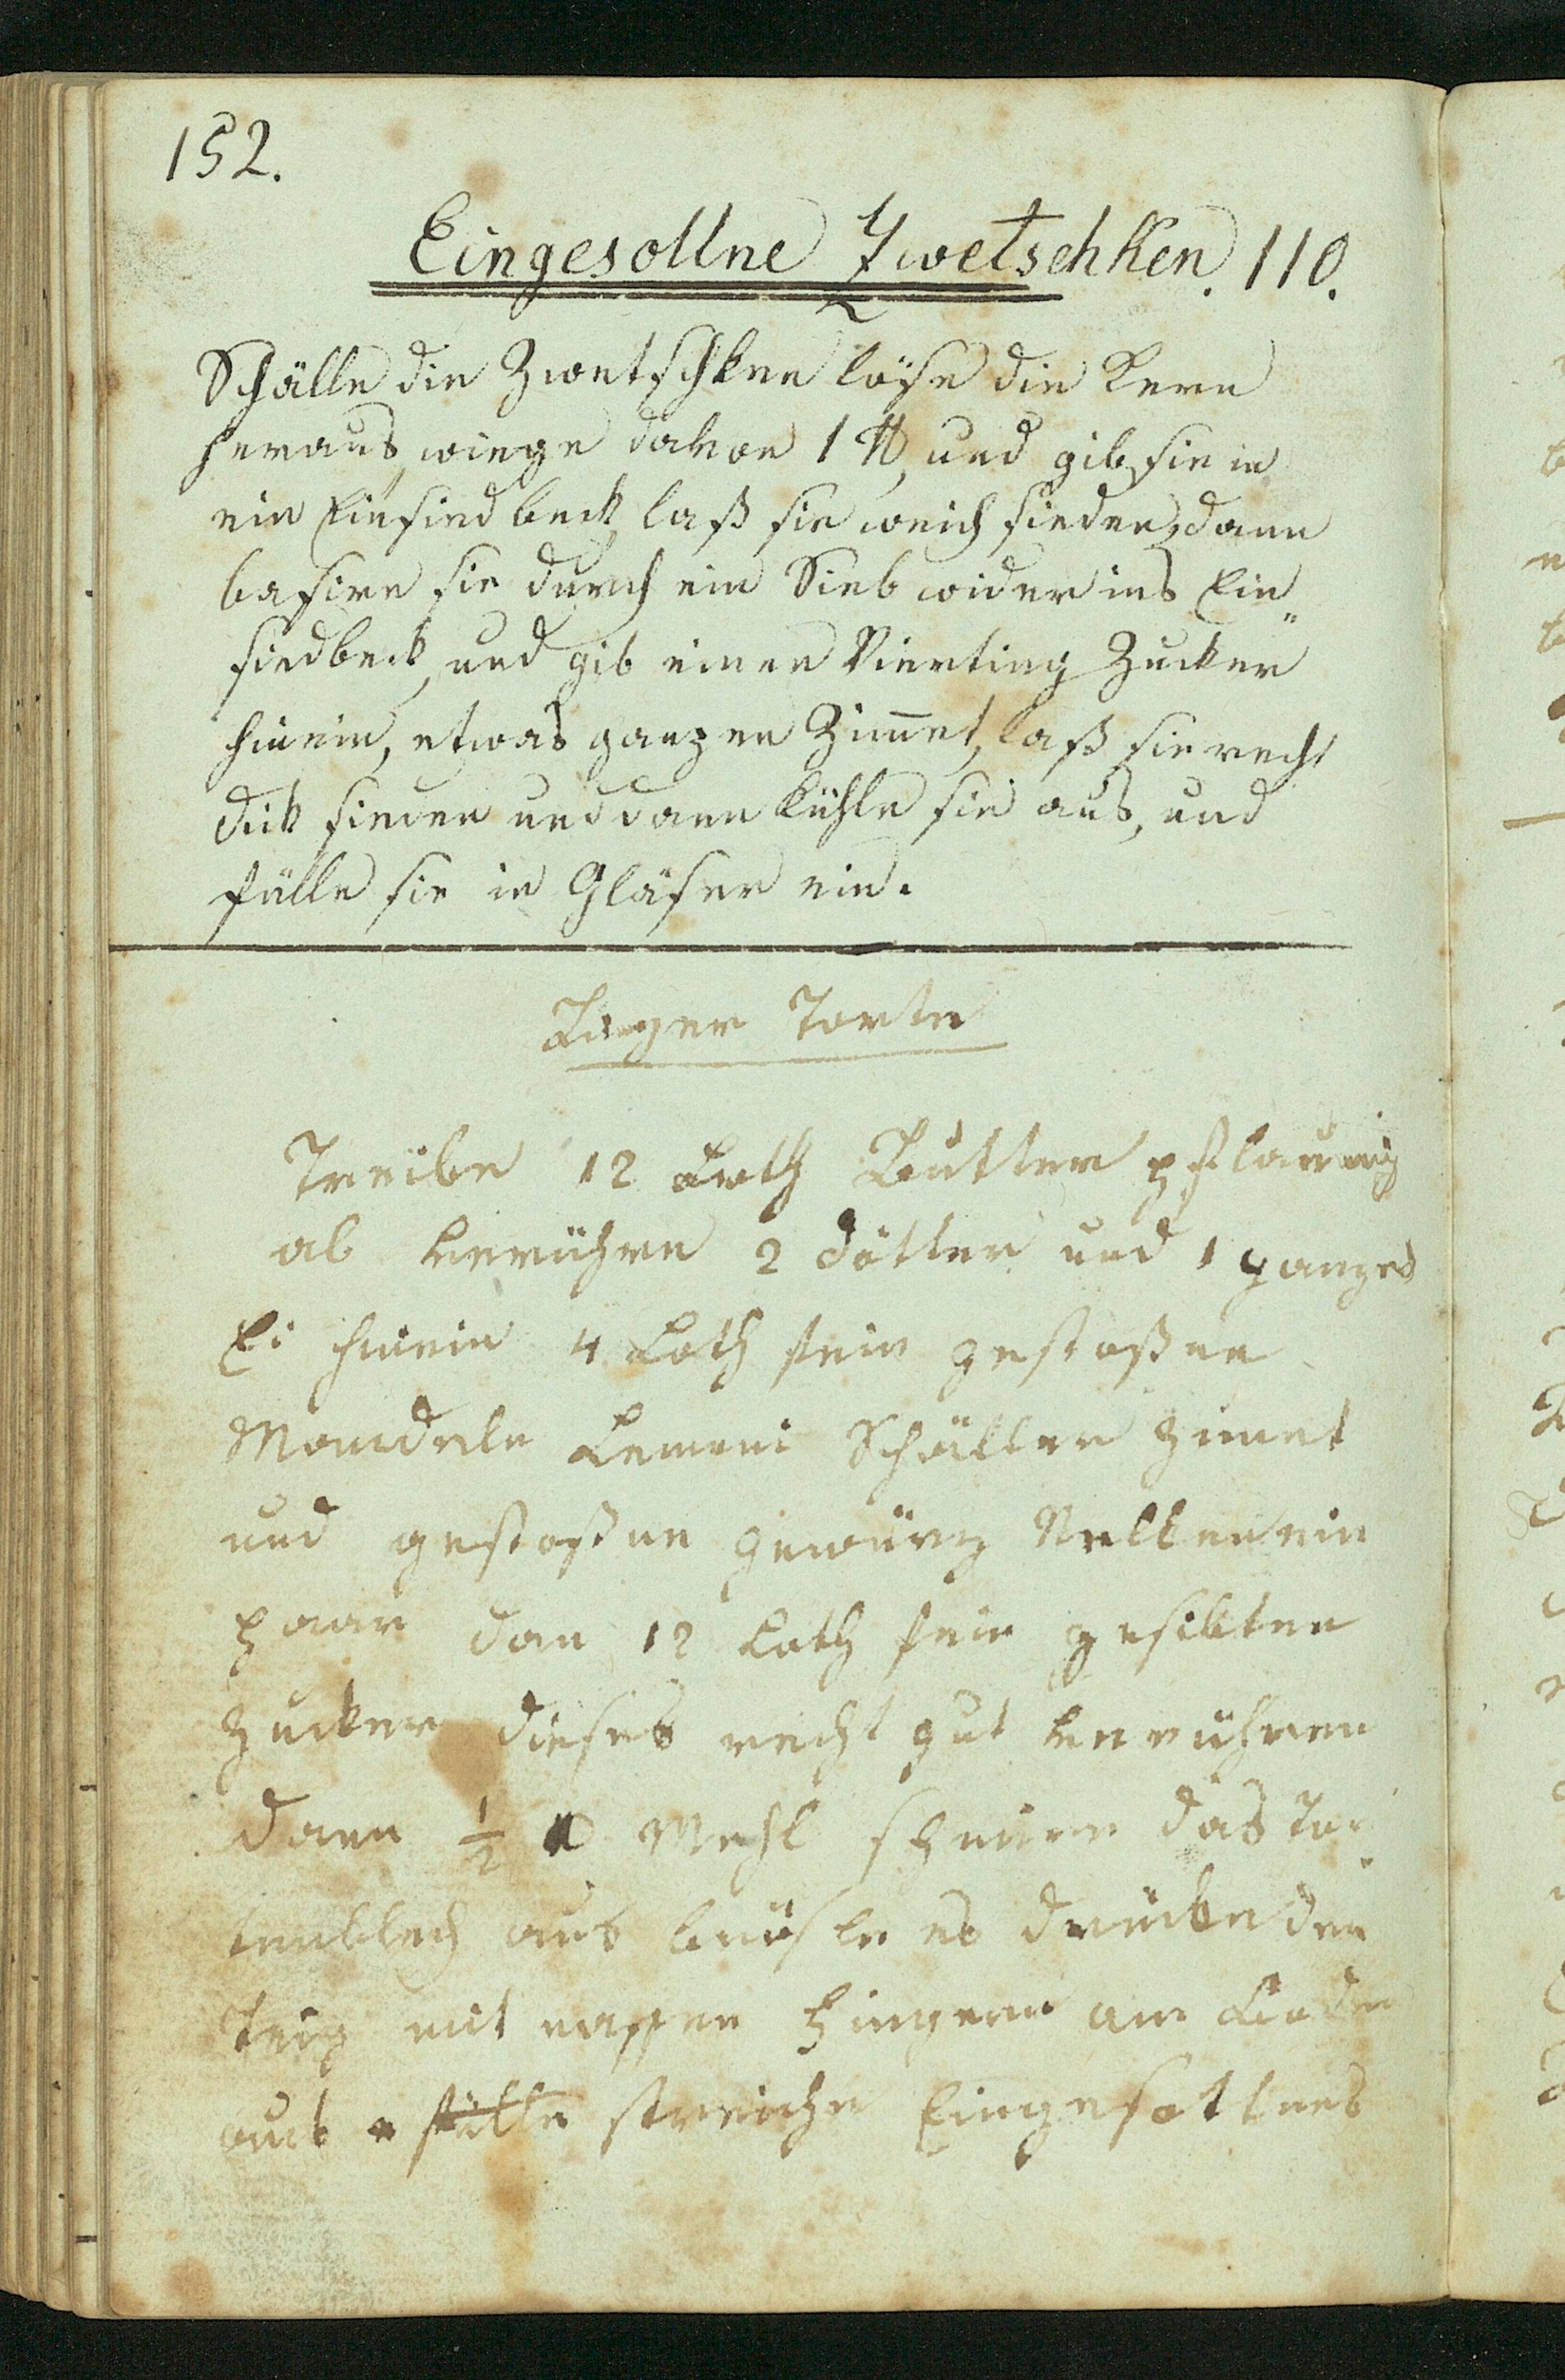 152.
Eingesottne Zwetschken. 110.
Schälle die Zwetschken löse die Kern
heraus, wiege davon 1 ℔, und gib sie in
ein Einsiedbeck, laß sie weich sieden, dann
basire sie durch ein Sieb wider ins Ein„
siedbeck, und gib einen Vierting Zucker
hinein, etwas ganzen Zim̅et, laß sie recht
dick sieden und dann kühle sie aus, und
fülle sie in Gläser ein.
Linzer Torte
Treibe 12 Loth Butter pflaumig
ab verrühre 2 Dötter und 1 ganzes
Ei hinein 4 Loth fein gestoßene
Mandeln Lemoni Schäller Zimet
und gestoßne gewürz Nelken ein
paar dan 12 Loth fein gesibten
Zucker dieses recht gut verrühren
dann ½ ℔ Mehl schmire das Tor„
tenblech aus brösle es drücke den
Teig mit nassen Fingern am Boden
aus fülle streiche Eingesottnes